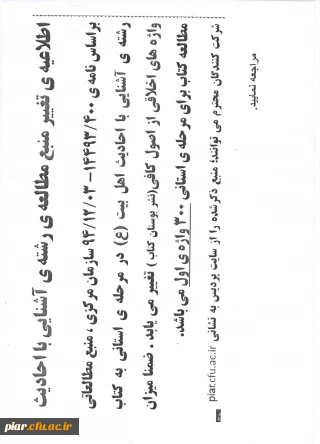 اطلاعیه ی تغییر منبع مطالعه ی رشته ی آشنایی با احادیث
براساس نامه ی ۱۴۴۹۳/۴۰۰ – ۹۴/۱۲/۰۳ سازمان مرکزی، منبع مطالعاتی
رشته ی آشنایی با احادیث اهل بیت (ع) در مرحله ی استانی به کتاب
واژه های اخلاقی از اصول کافی (نشر بوستان کتاب) تغییر می یابد. ضمنا میزان
مطالعه کتاب برای مرحله ی استانی ۳۰۰ واژه ی اول می باشد.
شرکت کنندگان محترم می توانند؛ منبع ذکر شده را از سایت پردیس به نشانی piar.cfu.ac.ir
مراجعه نمایید.
piar.cfu.ac.ir